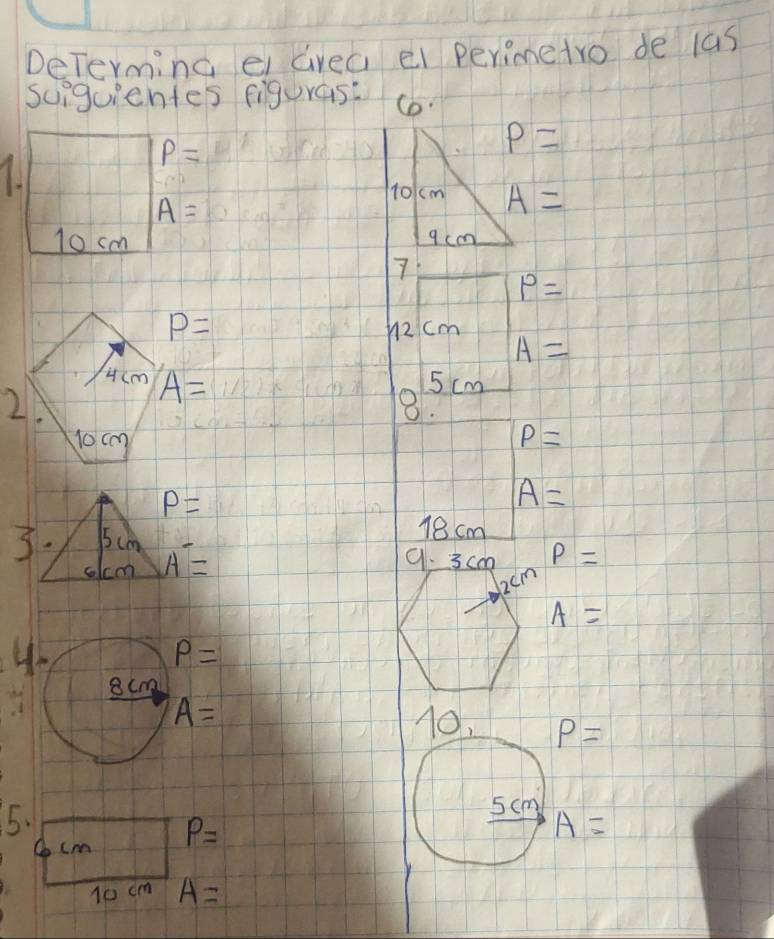 DeTermina el área el Perimetro de las
suiguientes figuras:
1.
P=
A=
10 cm
2.
P=
4cm
A=
10 cm
3.
P=
5cm
6cm
A=
4.
P=
8cm
A=
5.
6 cm
P=
10 cm
A=
6.
P=
10 cm
A=
9cm
7.
P=
12 cm
A=
5cm
8.
P=
A=
18cm
9.
3cm
P=
2cm
A=
10.
P=
5cm
A=